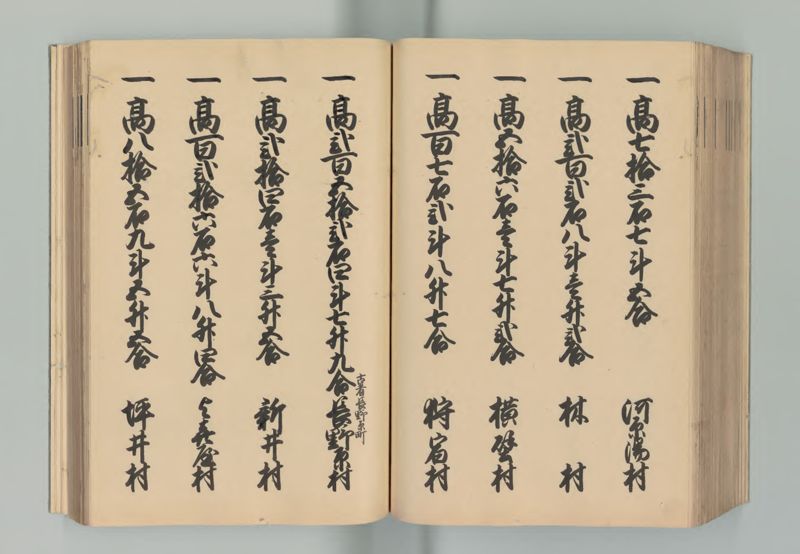 一 高七拾三石七斗五合 河原湯村
一 高弐百弐石八斗壱升弐合 林村
一 高五拾六石壱斗七升弐合 横壁村
一 高百七石弐斗八升七合 狩宿村
一 高弐百五拾弐石四斗七升九合 古者長野原町 長野原村
一 高弐拾四石壱斗三升五合 新井村
一 高百弐拾六石六斗八升四合 与喜屋村
一 高八拾五石九斗五升五合 坪井村